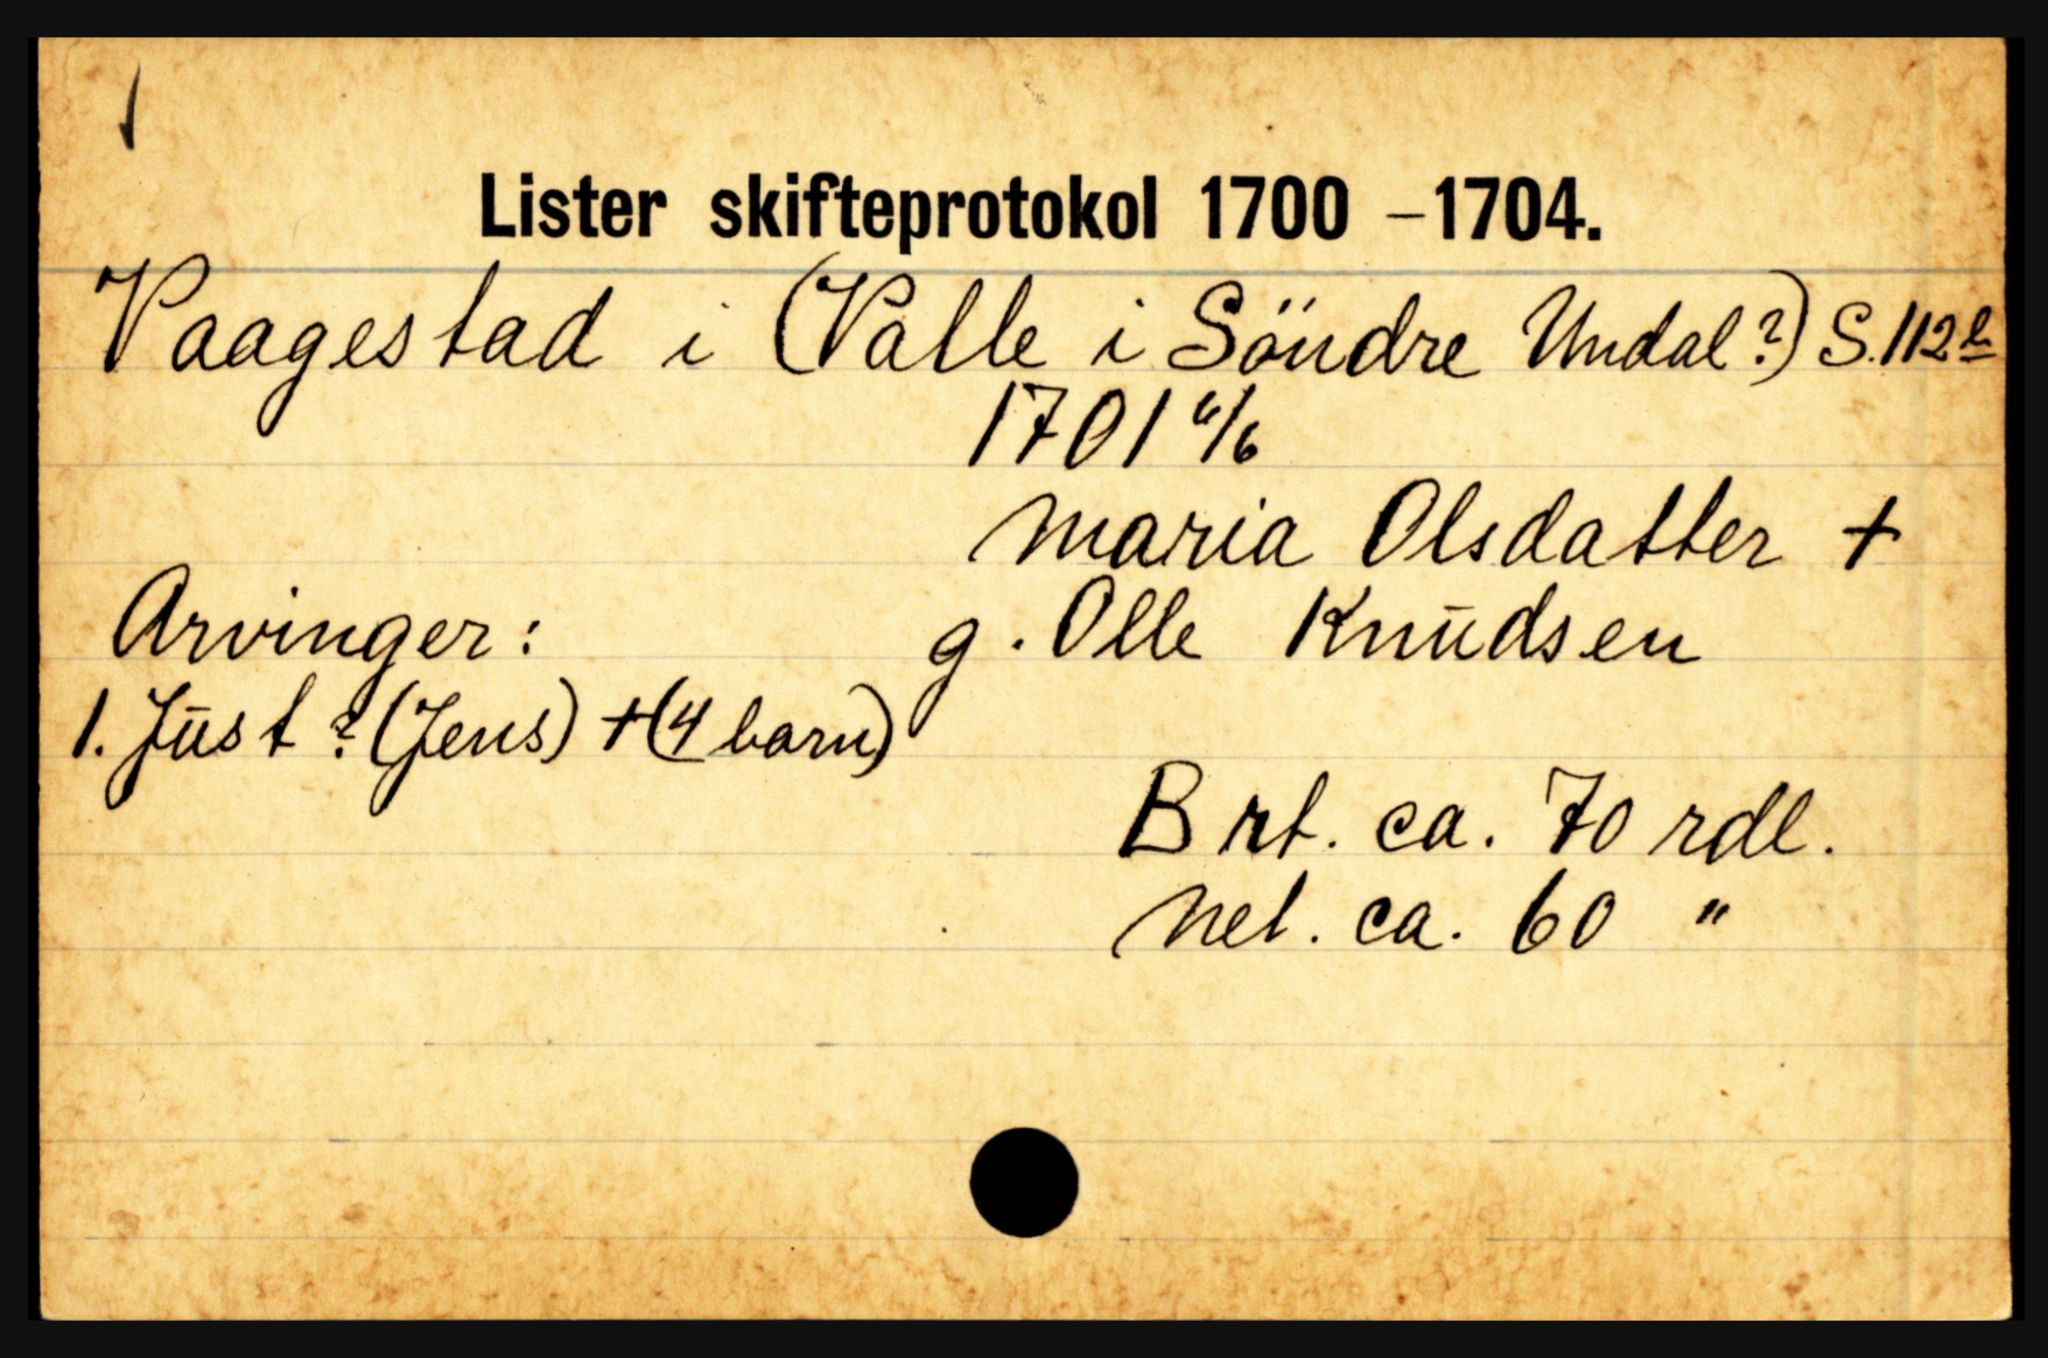 Lister skifteprotokol 1700 - 1704.
Vaagestad i (Valle i Söndre Undal?) S. 112 b
1701 6/6
Maria Olsdatter +
Arvinger: g. Olle Knūdsen
1. Jūst ? (Jens) + (4 barn)
Brt. ca. 70 rdl.
Net. ca. 60 "